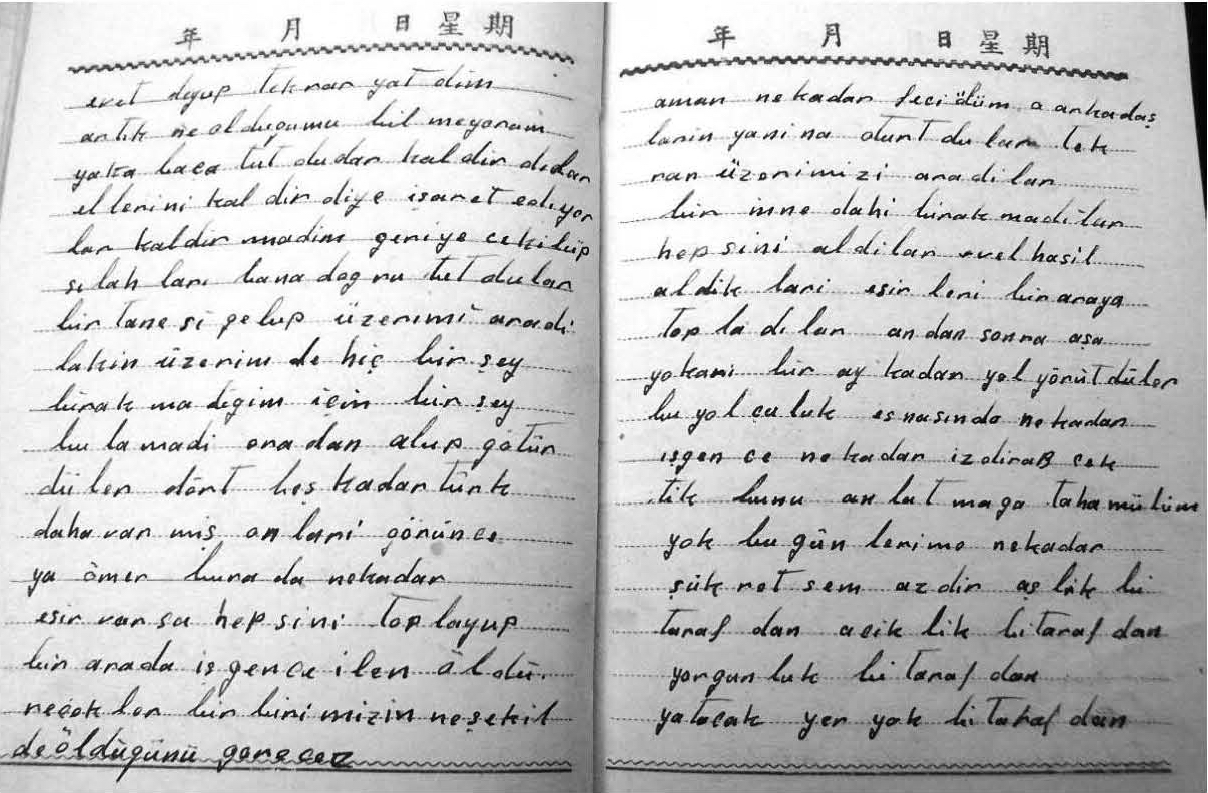 年 月 日 星 期
evet deyup tekrar yat dim
artik ne oldugumu bil meyorum
yaka baça tut dudar kaldir didar
ellerini kal dir diye işaret ediyor
lar kaldir madim geriye cekilüp
silah lari bana dogru tut dular
bir tane si gelup üzerimi aradi
lakin üzerim de hiç bir şey
birak ma digim icin bir şey
bu la madi ora dan alup götür
dü ler dört beş kadar türk
daha var miş on lari görünce
ya ömer bura da nekadar
esir varsa hep sini toplayup
bir arada is gence ilen öldü
recek ler bir biri mizin neşekil
de öldügünü gorecez
年 月 日 星 期
aman ne kadar feci ölüm o arkadaş
larin yani na oturt du lar tek
rar üzerimizi aradi lar
bir inne dahi birak madilar
hep sini al dilar evel hasil
aldik lari esir leri bir araya
top la di lar an dan sonra aşa
yokari bir ay kadar yol yörüt düler
bu yol culuk esnasinda ne kadar
işgen ce ne kadar izdiraB cek
tik bunu an lat maga tahamülüm
yok bu gün lerime nekadar
şük ret sem az dir aş lik bi
taraf dan acik lik bi taraf dan
yorgun luk bi taraf dan
yatacak yer yok bi taraf dan